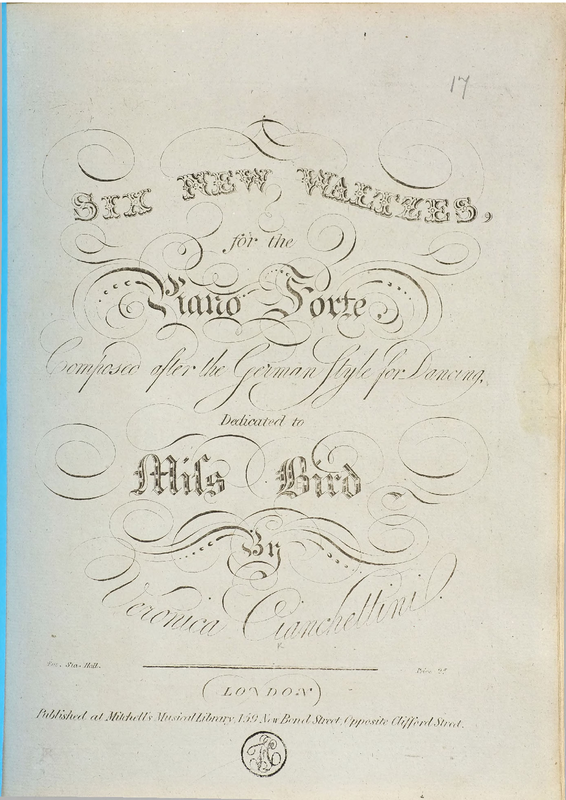 17
SIX NEW WALTZES,
for the
Piano Forte,
Composed after the German Style for Dancing,
Dedicated to
Miſs Bird
By
Veronica Cianchellini.
Sta. Hall.
Price
LONDON
Published at Mitchell's Musical Library, 159 New Bond Street, Opposite Clifford Street.